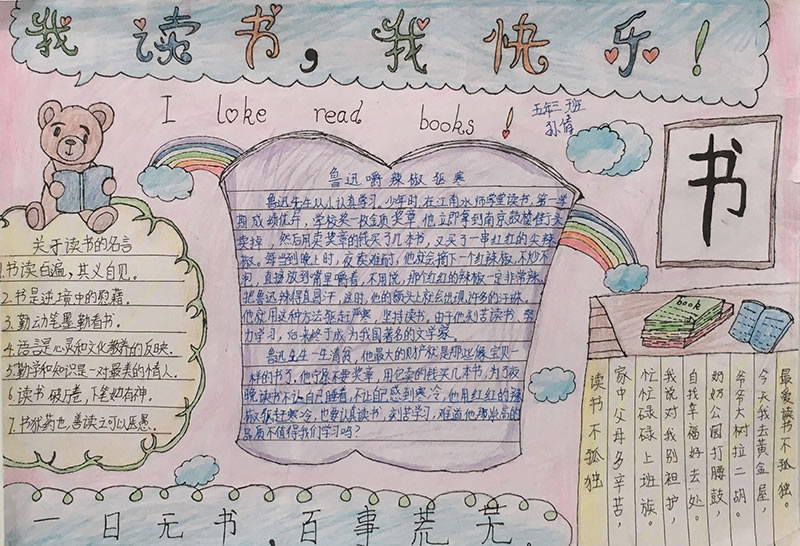 我读书，我快乐！
I loke read books !
五年三班
书
关于读书的名言
1.书读百遍，其义自见。
2.书是逆境中的慰藉。
3.勤动笔墨勤看书。
4.语言是心灵和文化教养的反映。
5.勤学和知识是一对最美的情人。
6.读书破万卷，下笔如有神。
7.书犹药也，善读之可以医愚。
鲁迅嚼辣椒驱寒
鲁迅先生从小认真学习，少年时，在江南水师学堂读书，第一学
期成绩优异，学校奖一枚金质奖章，他立即拿到南京鼓楼街头
卖掉，然后用卖奖章的钱买了几本书，又买了一串红红的尖辣
椒。每当到晚上时，夜寒难耐，他就会摘下一个红辣椒，不炒不
泡，直接放到嘴里嚼着，不用说，那个红红的辣椒一定非常辣，
把鲁迅辣得直冒汗，这时，他的额头上就会出现许多的汗珠。
他就用这种方法驱赶严寒，坚持读书，由于他刻苦读书，努
力学习，后来终于成为我国著名的文学家。
鲁迅先生一生清贫，他最大的财产就是那些像宝贝一
样的书了，他宁愿不要奖章，用它卖的钱买几本书，为了夜
晚读书不让自己睡着，不让自己感到寒冷，他用红红的辣
椒驱赶寒冷，也要认真读书，刻苦学习，难道他那崇高的
品质不值得我们学习吗？
读书不孤独
家中父母多辛苦，
忙忙碌碌上班族。
我说对我别袒护，
自找幸福好去处。
奶奶公园打腰鼓，
爷爷大树拉二胡。
今天我去黄金屋，
最爱读书不孤独。
book
一日无书，百事荒芜。